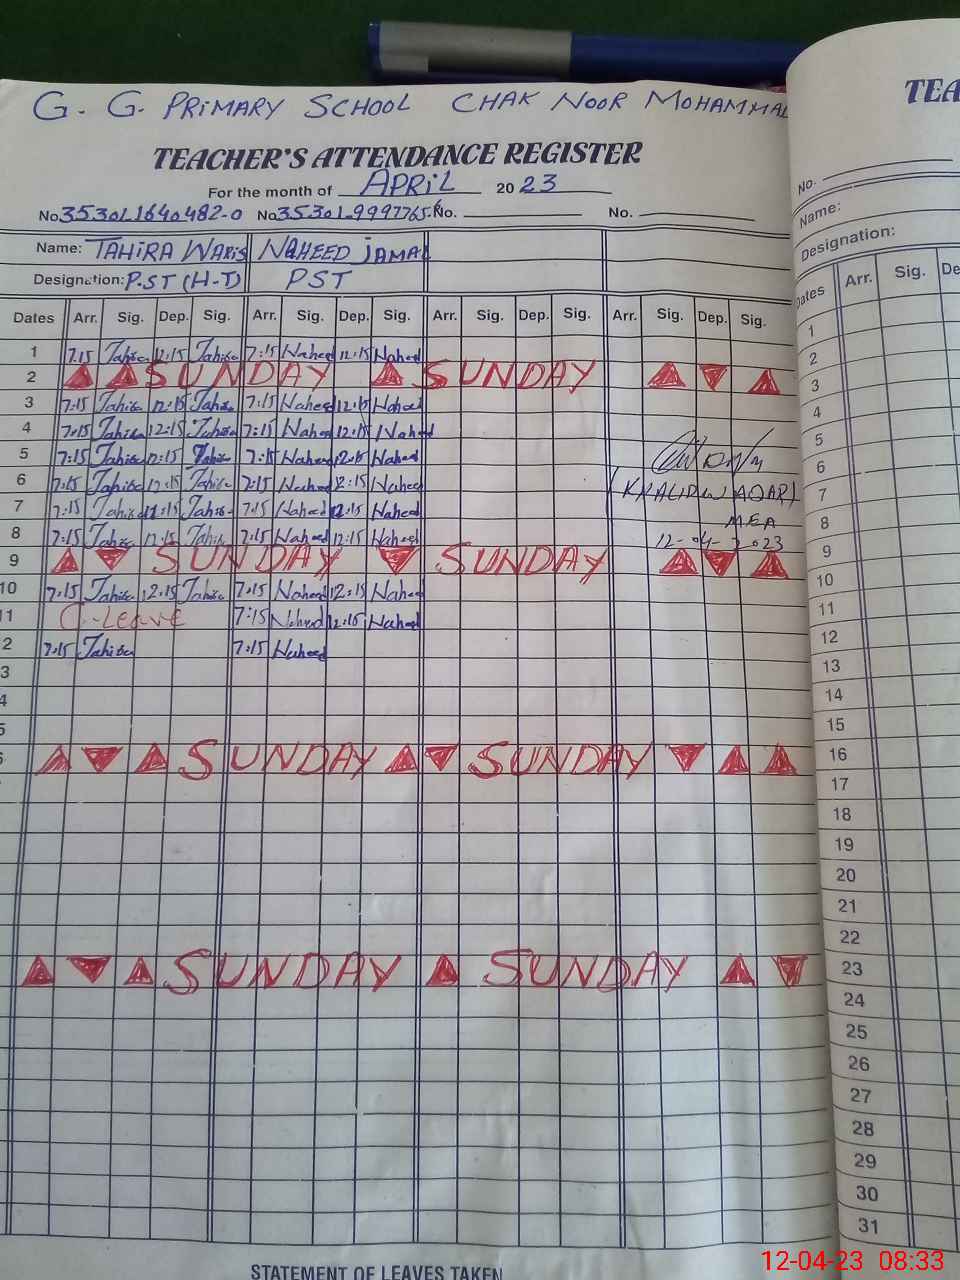 G. G. PRIMARY SCHOOL CHAK NOOR MOHAMMAD
TEACHER'S ATTENDANCE REGISTER
For the month of APRIL 2023
No. 35301-1640482-0 No. 35301-9997765- No. No.
Name: TAHIRA WARIS NAHEED JAMAL
Designation: P.ST (H-T) PST
Dates Arr. Sig. Dep. Sig. Arr. Sig. Dep. Sig. Arr. Sig. Dep. Sig. Arr. Sig. Dep. Sig.
1 7:15 Tahira 12:15 Tahira 7:15 Naheed 12:15 Naheed
2 SUNDAY SUNDAY
3 7:15 Tahira 12:15 Tahira 7:15 Naheed 12:15 Naheed
4 7:15 Tahira 12:15 Tahira 7:15 Naheed 12:15 Naheed
5 7:15 Tahira 12:15 Tahira 7:15 Naheed 12:15 Naheed
6 7:15 Tahira 12:15 Tahira 7:15 Naheed 12:15 Naheed
(KHALID WAQAR)
7 7:15 Tahira 12:15 Tahira 7:15 Naheed 12:15 Naheed
MEA
8 7:15 Tahira 12:15 Tahira 7:15 Naheed 12:15 Naheed
12-04-2023
9 SUNDAY SUNDAY
10 7:15 Tahira 12:15 Tahira 7:15 Naheed 12:15 Naheed
11 C-Leave 7:15 Naheed 12:15 Naheed
2 7:15 Tahira 7:15 Naheed
3
4
5
6 SUNDAY SUNDAY
SUNDAY SUNDAY
STATEMENT OF LEAVES TAKEN
TEA
No.
Name:
Designation:
Dates Arr. Sig. De
1
2
3
4
5
6
7
8
9
10
11
12
13
14
15
16
17
18
19
20
21
22
23
24
25
26
27
28
29
30
31
12-04-23 08:33